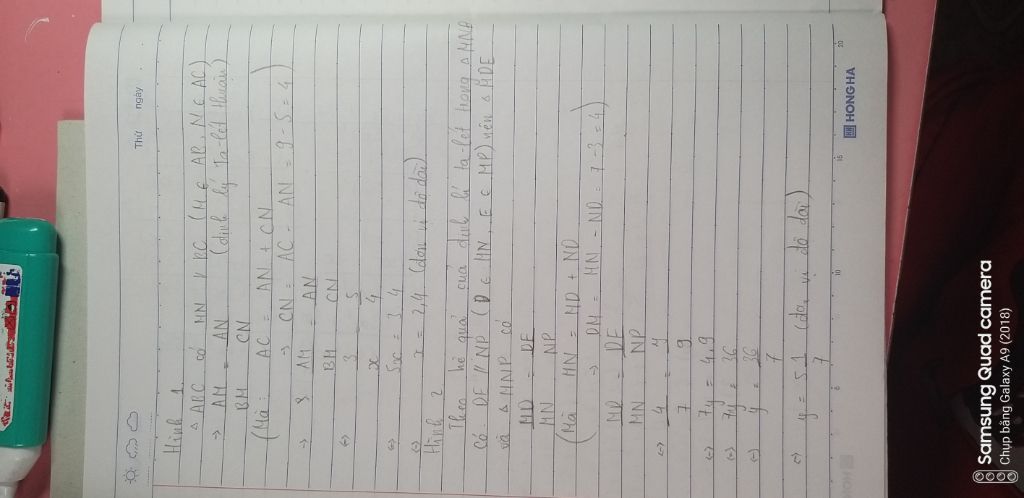 Thứ ngày
Hình 1
△ ABC có MN // BC (M ∈ AB, N ∈ AC)
→ AM/BM = AN/CN (định lý Ta-lét thuận)
(Mà: AC = AN + CN
→ CN = AC - AN = 9 - 5 = 4)
→ AM/BM = AN/CN
⇔ 3/x = 5/4
⇔ 5x = 3.4
⇔ x = 2,4 (đơn vị độ dài)
Hình 2
Theo hệ quả của định lí ta-lét trong △ MNP
Có DE // NP (D ∈ MN, E ∈ MP) nên △ MDE
và △ MNP có
MD/MN = DE/NP
(Mà MN = MD + ND
→ DM = MN - ND = 7 - 3 = 4)
MD/MN = DE/NP
⇔ 4/7 = y/9
⇔ 7y = 4.9
⇔ 7y = 36
⇔ y = 36/7
⇔ y = 5 1/7 (đơn vị độ dài)
HONG HA
5 10 15 20
Samsung Quad camera
Chụp bằng Galaxy A9 (2018)